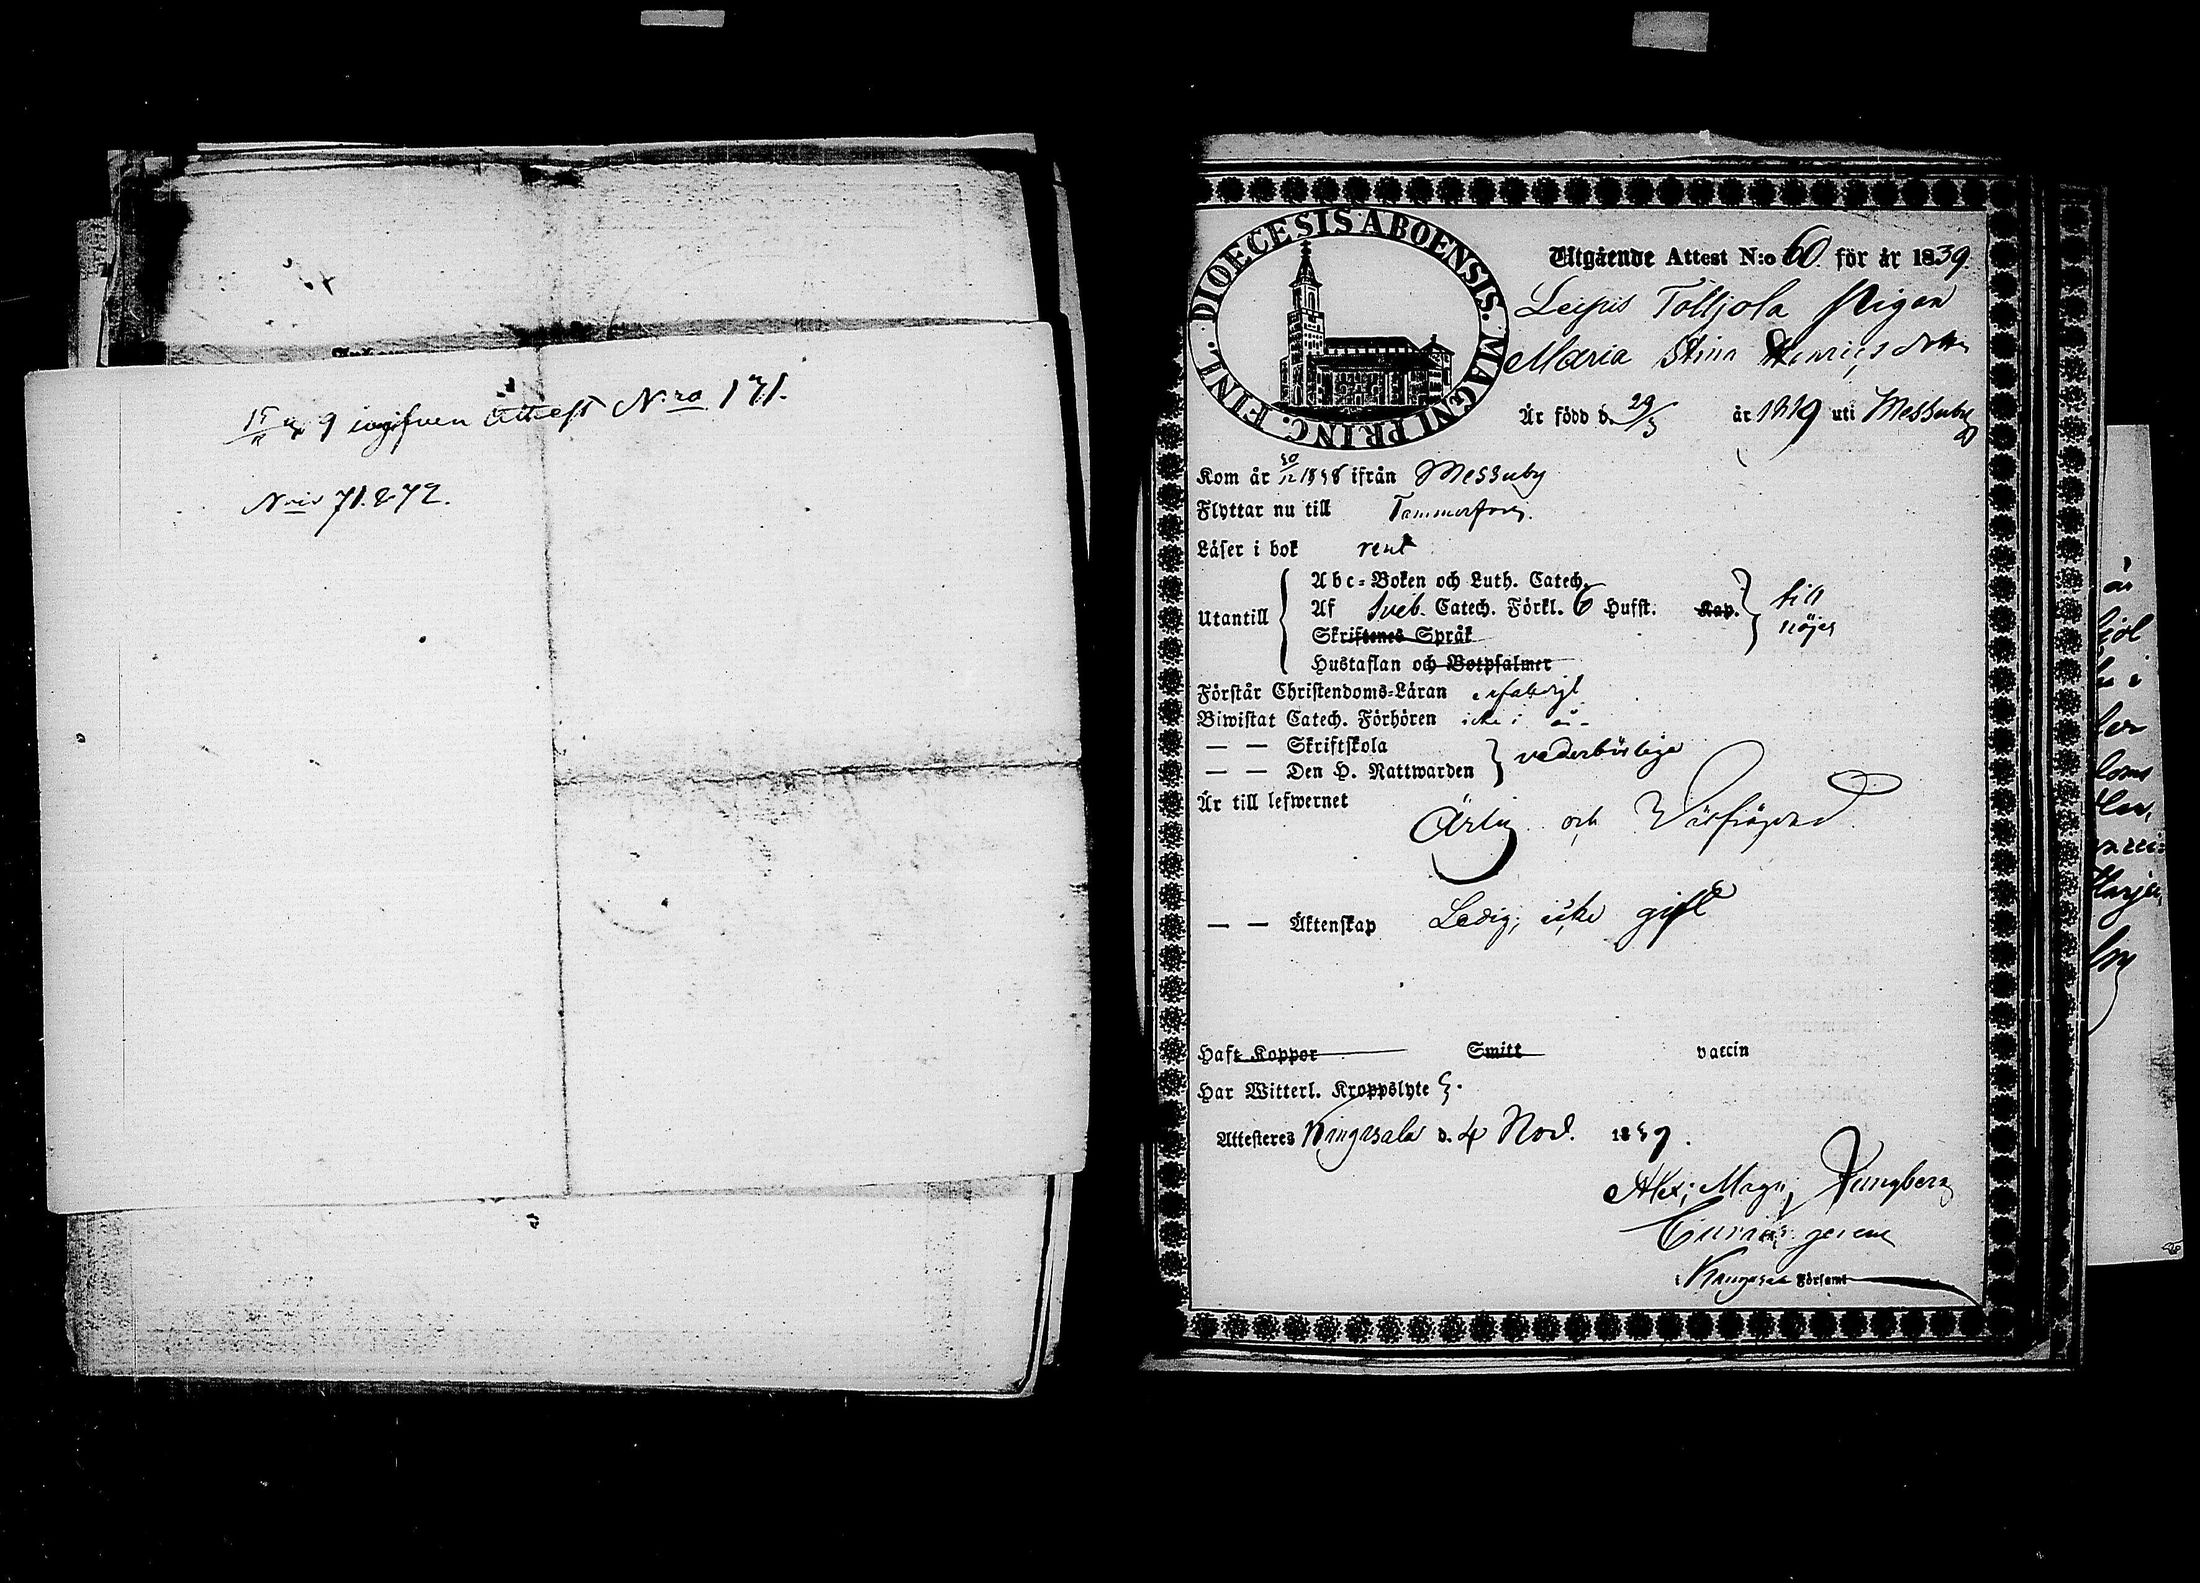 15/11 39 ingifven Attest N:ro 171.
N:ris 71. & 72.
DIOECESIS ABOENSIS. MAGNI PRINC. FINL.
Utgående Attest N:o 60. för år 1839.
Tolljola Pigan
Maria Stina Henricsdotter
Är född d. 29/3 år 1819 uti Messuby
Kom år 30/12 1838 ifrån Messuby
Flyttar nu till Tammerfors.
Läser i bok rent
Utantill
Abc-Boken och Luth. Catech.
Af Sveb. Catech. Förkl. 6 Hufst. Kap.
Skriftenes Språk
Hustaflan och Botpsalmer
till nöjes
Förstår Christendoms-Läran
Biwistat Catech. Förhören icke i år
— — Skriftskola
— — Den H. Nattwarden
vederbörligen
Är till lefwernet Ärlig och Välfrägdad
— — Äktenskap Ledig, icke gift
Haft Koppor Smitt vaccin
Har Witterl. Kroppslyte
Attesteras Kangasala d. 4 Nov. 1839.
Alex. Magn.
gerens
i Kangasala Församl